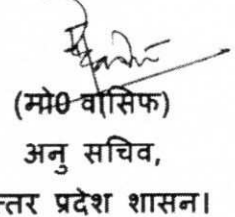 (मो0 वासिफ)
अनु सचिव,
त्तर प्रदेश शासन।